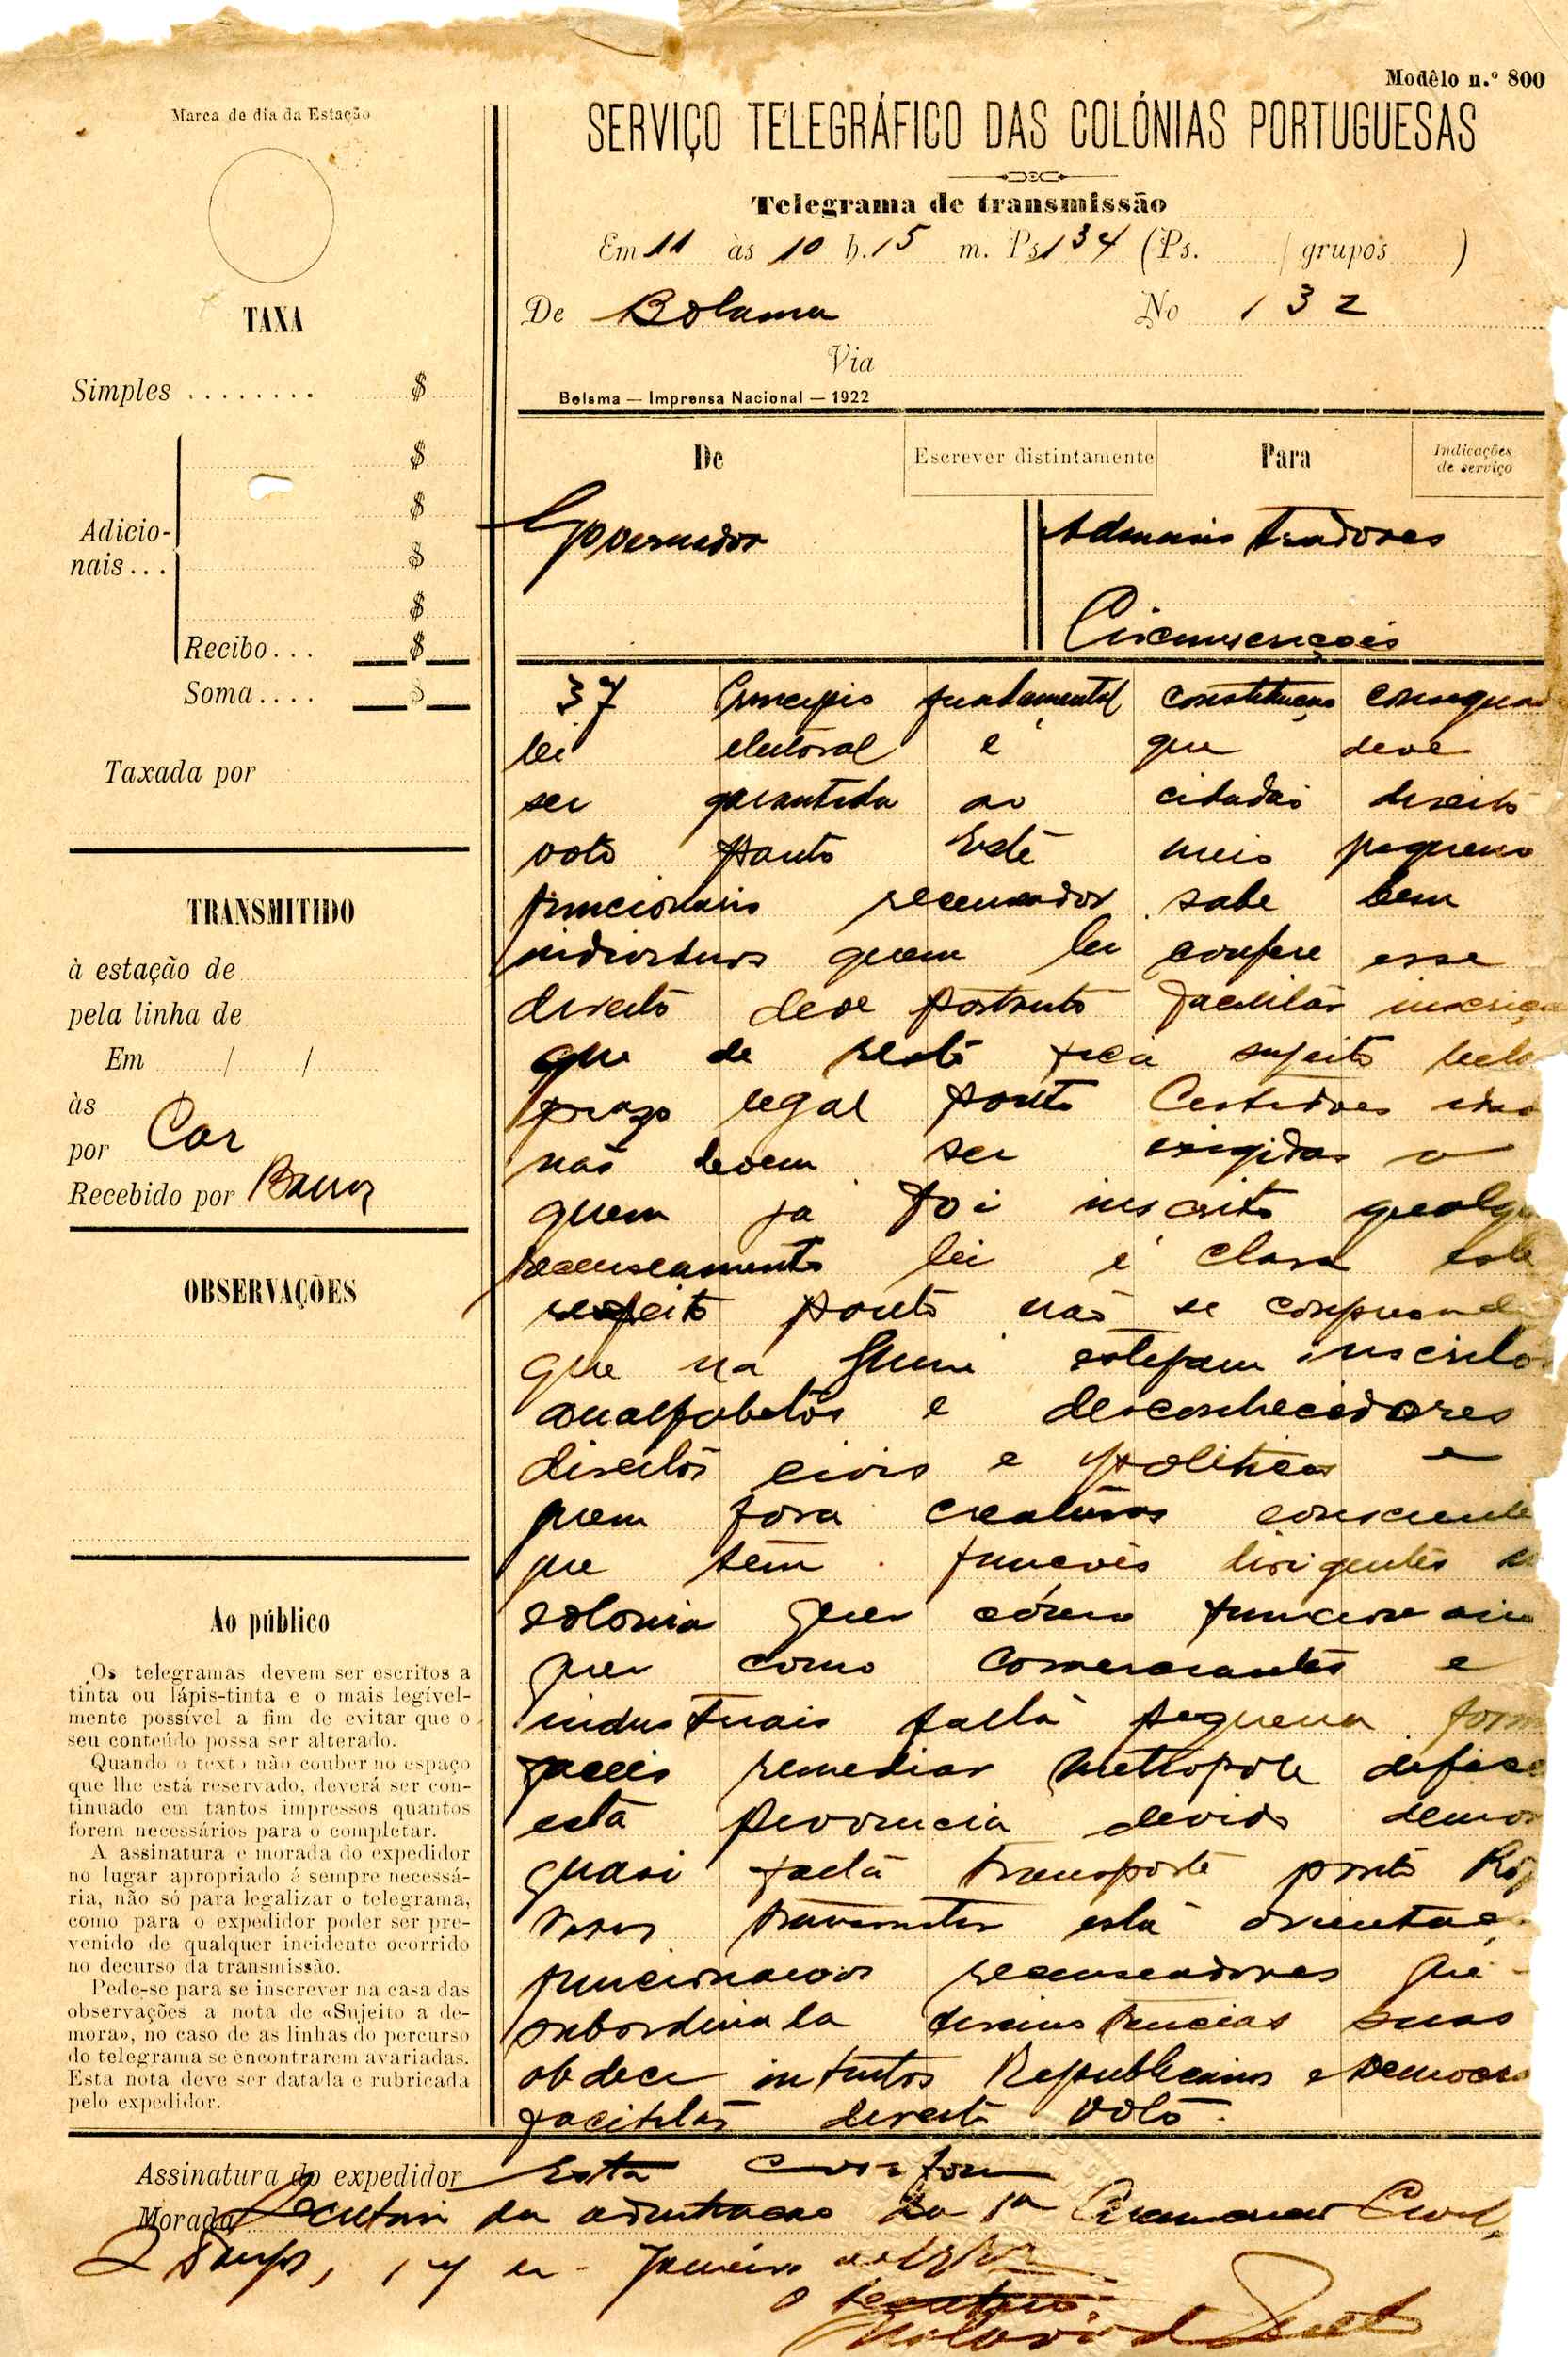 Modêlo n.º 800
Marca de dia da Estação
SERVIÇO TELEGRÁFICO DAS COLÓNIAS PORTUGUESAS
Telegrama de transmissão
Em 11 às 10 h. 15 m. Ps 134 (Ps. / grupos )
De Bolama No 132
Via
Bolama — Imprensa Nacional — 1922
TAXA
Simples ........ $
$
$
Adicio-
nais... $
$
Recibo... $
Soma.... $
Taxada por
TRANSMITIDO
à estação de
pela linha de
Em / /
às
por Car
Recebido por
OBSERVAÇÕES
Ao público
Os telegramas devem ser escritos a
tinta ou lápis-tinta e o mais legível-
mente possível a fim de evitar que o
seu conteúdo possa ser alterado.
Quando o texto não couber no espaço
que lhe está reservado, deverá ser con-
tinuado em tantos impressos quantos
forem necessários para o completar.
A assinatura e morada do expedidor
no lugar apropriado é sempre necessá-
ria, não só para legalizar o telegrama,
como para o expedidor poder ser pre-
venido de qualquer incidente ocorrido
no decurso da transmissão.
Pede-se para se inscrever na casa das
observações a nota de «Sujeito a de-
mora», no caso de as linhas do percurso
do telegrama se encontrarem avariadas.
Esta nota deve ser datada e rubricada
pelo expedidor.
De Escrever distintamente Para Indicações
de serviço
Governador Administradores
Circunscriçois
37 Principio fundamental constituição
lei eleitoral é que deve
ser garantida ao cidadão direito
voto ponto Este meio pequeno
funcionario recenseador sabe bem
individuos quem lei confere esse
direito deve portanto facilitar
que de resto fica sujeito
prazo legal ponto Certidões
não devem ser exigidas a
quem ja foi inscrito
recenseamento lei é clara
respeito ponto não se
que na Guiné estejam inscritos
analfabetos e desconhecedores
direitos civis e politicos e
quem fora creaturas
que têm funcões dirigentes
colonia quer cómo
quer como comerciantes e
industriais falta pequena
faceis remediar metropole
esta provincia devido
quasi falta transporte ponto
transmitir esta
funcionarios recenseadores que
subordinala circunstancias suas
obdece intuitos Republicanos e
facilitar direito voto.
Assinatura do expedidor Está conforme
Morada Secretaria da 1ª Civil,
17 de Janeiro de
O Secretario